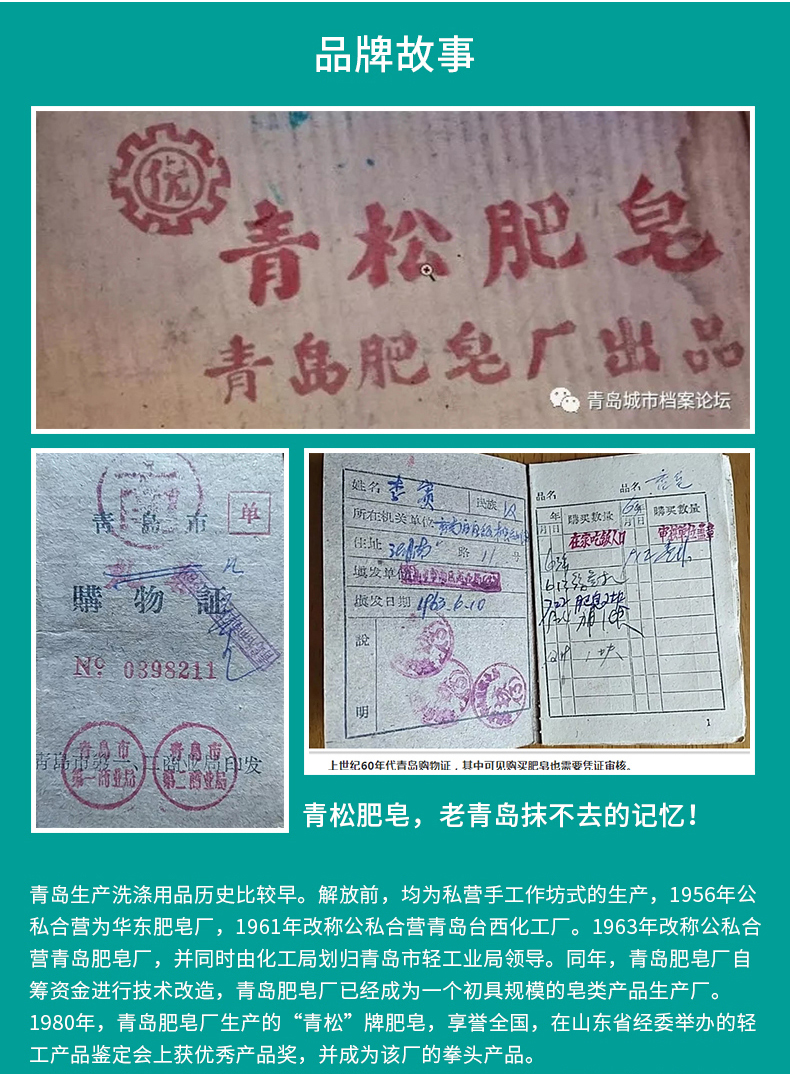 品牌故事
优
青松肥皂
青岛肥皂厂出品
青岛城市档案论坛
青岛市
单
購物証
No 0398211
青岛市第一、二商业局印发
青岛市
第一商业局
青岛市
第二商业局
姓名
民族
所在机关单位
住址 路 11 号
填发单位
填发日期 1963.6.10
説
明
品名
品名
年
月 日
購买数量
年
月 日
購买数量
1
上世纪60年代青岛购物证,其中可见购买肥皂也需要凭证审核。
青松肥皂,老青岛抹不去的记忆!
青岛生产洗涤用品历史比较早。解放前,均为私营手工作坊式的生产,1956年公
私合营为华东肥皂厂,1961年改称公私合营青岛台西化工厂。1963年改称公私合
营青岛肥皂厂,并同时由化工局划归青岛市轻工业局领导。同年,青岛肥皂厂自
筹资金进行技术改造,青岛肥皂厂已经成为一个初具规模的皂类产品生产厂。
1980年,青岛肥皂厂生产的“青松”牌肥皂,享誉全国,在山东省经委举办的轻
工产品鉴定会上获优秀产品奖,并成为该厂的拳头产品。